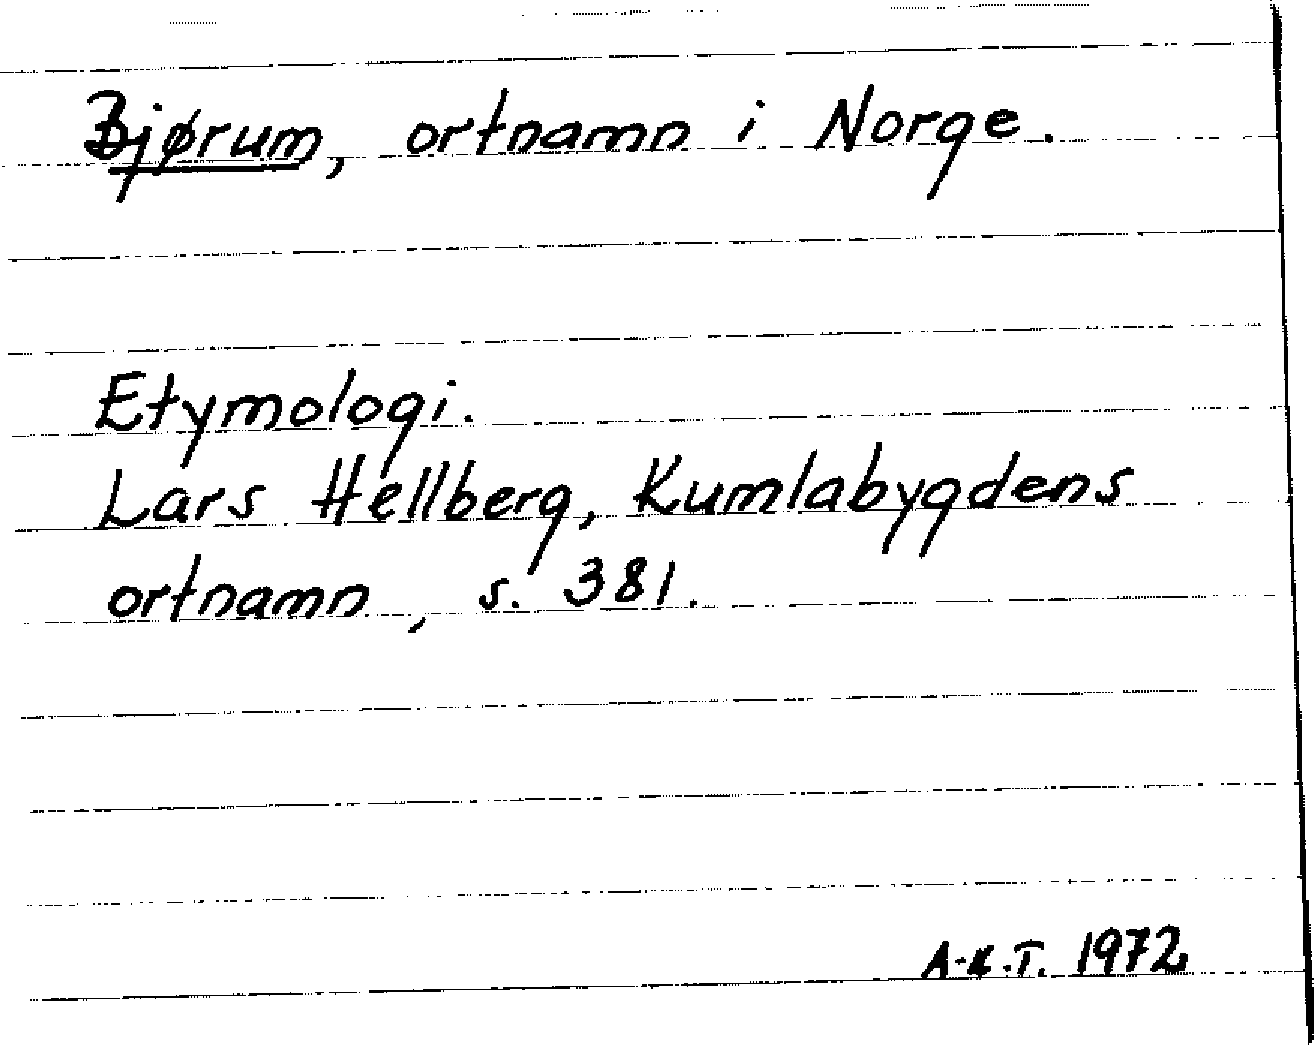 Bjørum, ortnamn i Norge.
Etymologi.
Lars Hellberg, Kumlabygdens
ortnamn, s. 381.
A-K.T. 1972